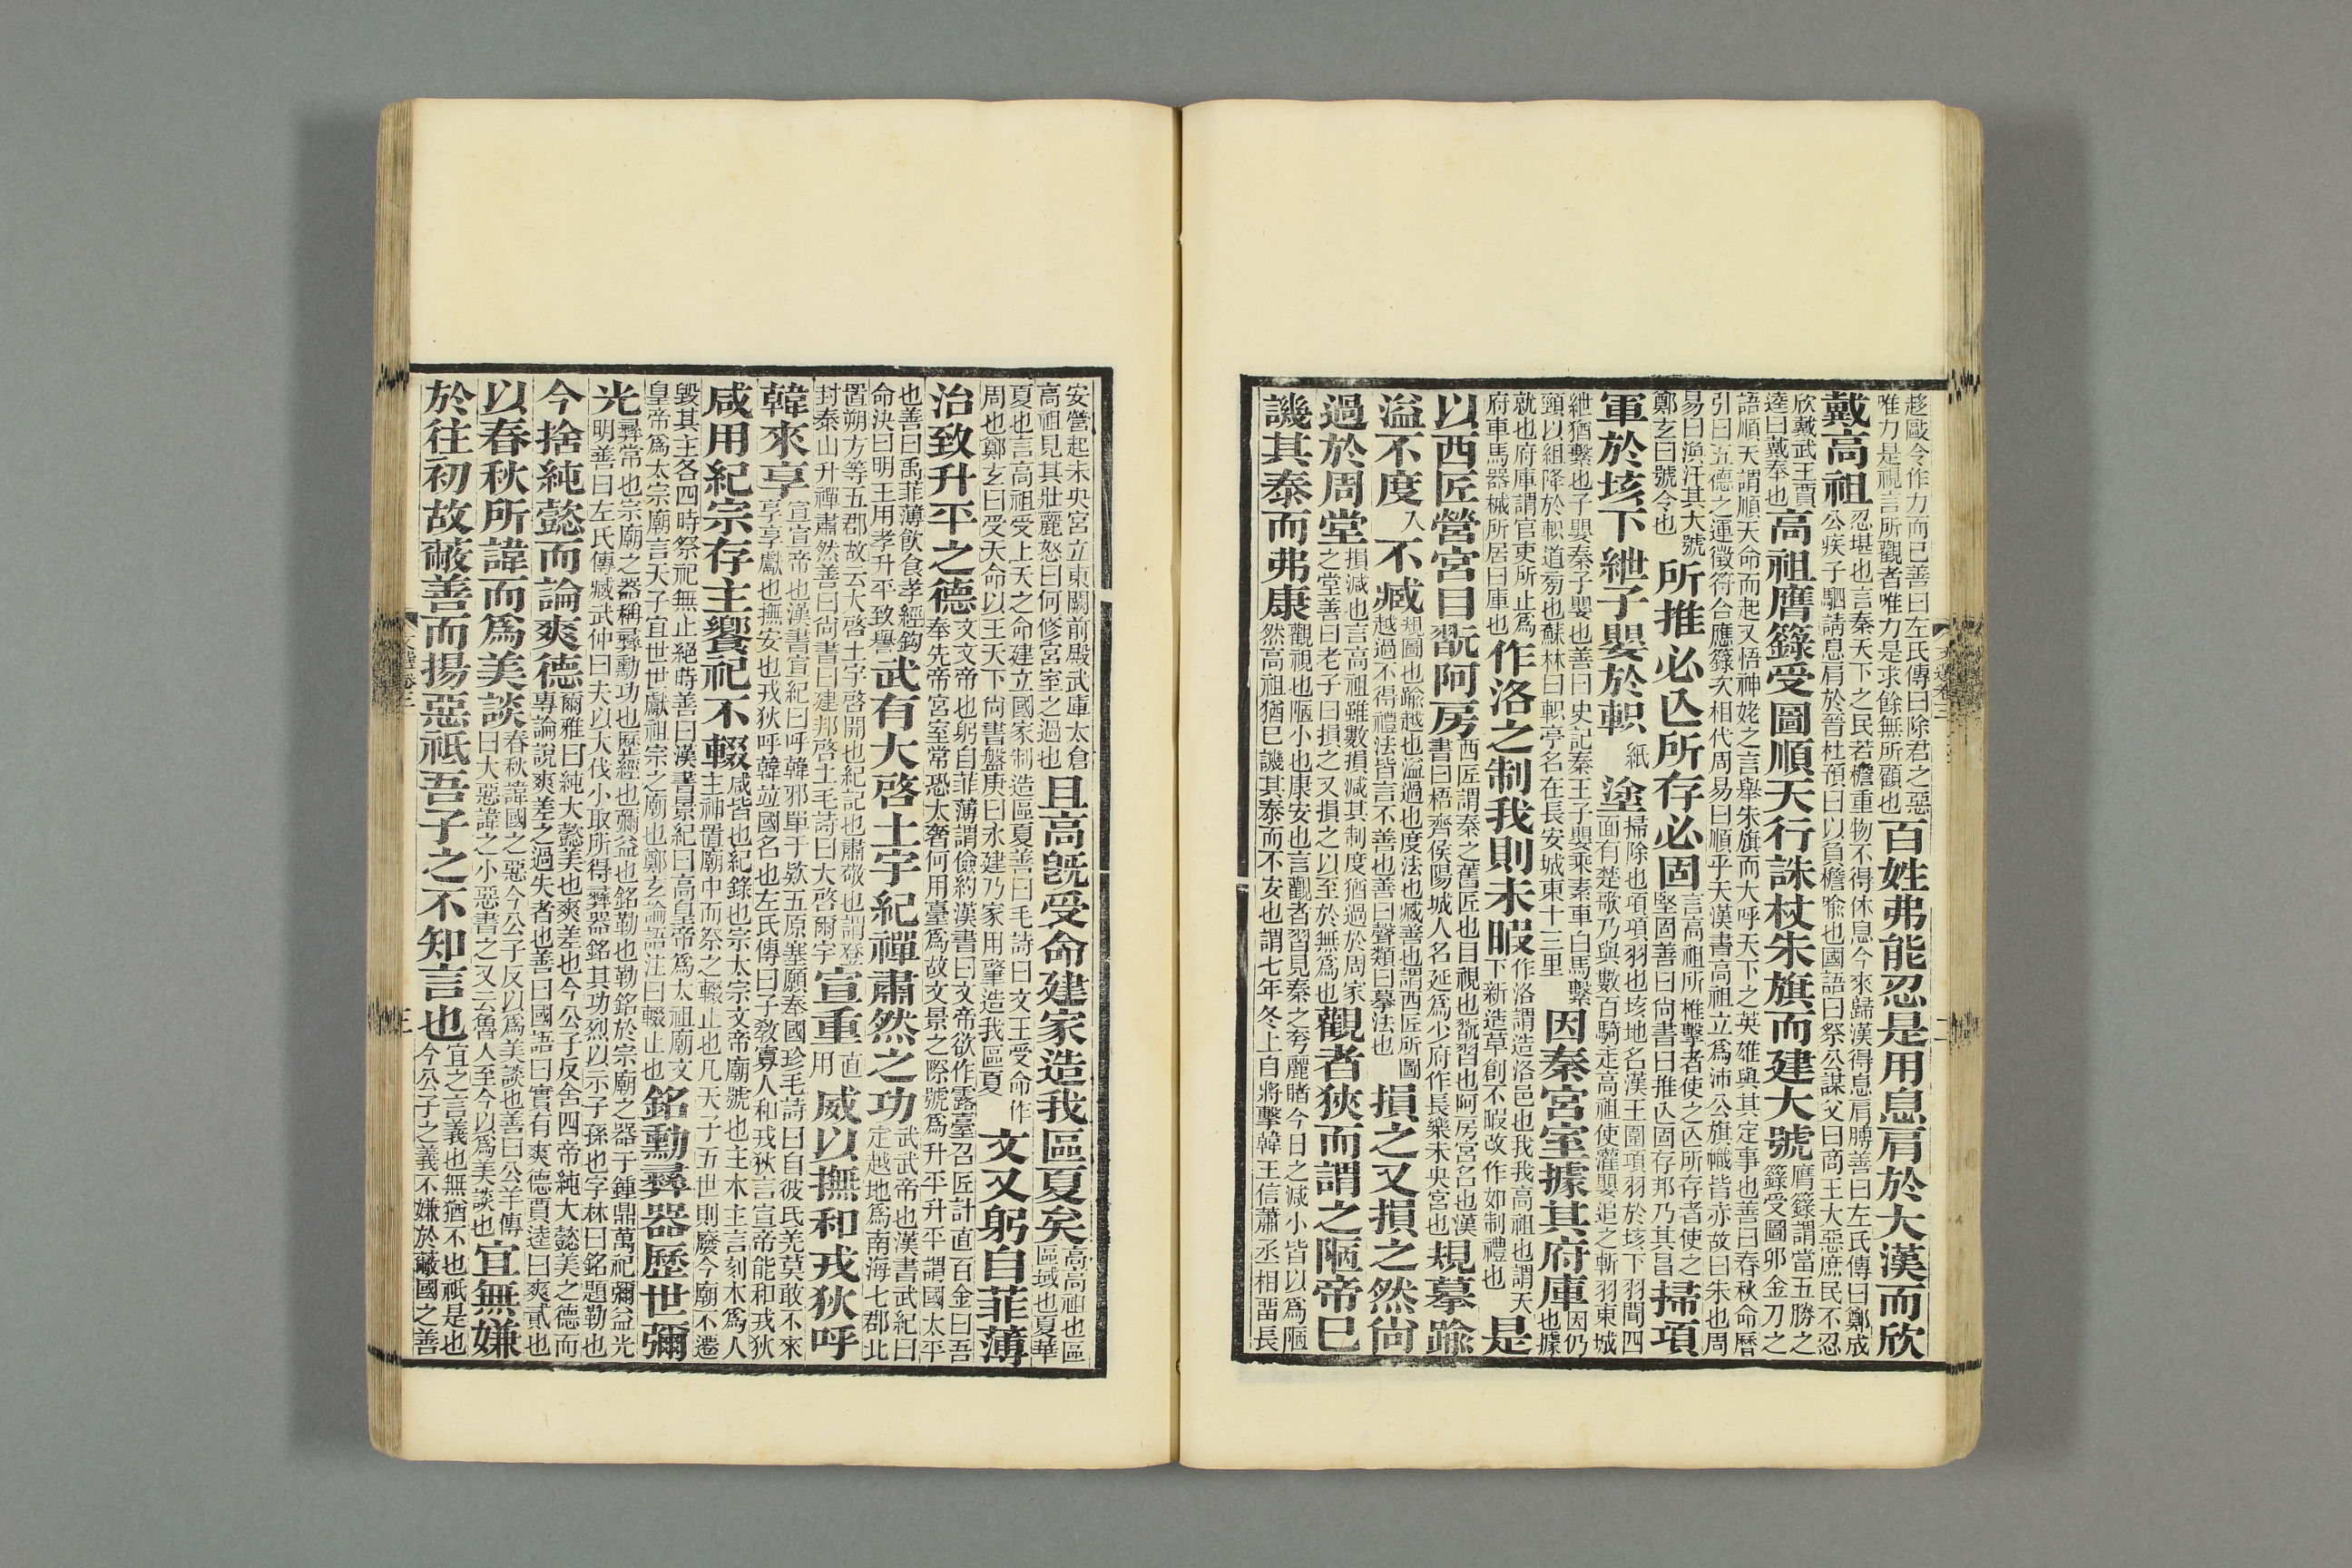 趍敺令作力而已善曰左氏傳曰除君之惡唯力是視言所觀者唯力是求餘無所顧也百姓弗能忍是用息肩於大漢而欣
戴高祖忍堪也言秦天下之民若檐重物不得休息今來歸漢得息肩膊善曰左氏傳曰鄭成公疾子駟請息肩於晉杜預曰以負檐喻也國語曰祭公謀父曰商王大惡庶民不忍
欣戴武王賈逵曰戴奉也高祖膺籙受圖順天行誅杖朱旗而建大號膺籙謂當五勝之籙受圖卯金刀之
語順天謂順天命而起又悟神姥之言舉朱旗而大呼天下之英雄與其定事也善曰春秋命歷引曰五德之運徵符合應籙次相代周易曰順乎天漢書高祖立為沛公旗幟皆赤故曰朱也周
易曰渙汗其大號鄭玄曰號令也所推必亾所存必固言高祖所椎擊者使之亾所存者使之堅固善曰尙書曰推亾固存邦乃其昌掃項
軍於垓下紲子嬰於軹紙塗掃除也項項羽也垓地名漢王圍項羽於垓下羽聞四面有楚歌乃與數百騎走高祖使灌嬰追之斬羽東城
紲猶繫也子嬰秦子嬰也善曰史記秦王子嬰乘素車白馬繫頸以組降於軹道旁也蘇林曰軹亭名在長安城東十三里因秦宮室據其府庫因仍也據
就也府庫謂官吏所止為府車馬器械所居曰庫也作洛之制我則未暇作洛謂造洛邑也我我高祖也謂天下新造草創不暇改作如制禮也是
以西匠營宮目翫阿房西匠謂秦之舊匠也目視也翫習也阿房宮名也漢書曰梧齊侯陽城人名延為少府作長樂未央宮也規摹踰
溢不度入不臧規圖也踰越也溢過也度法也臧善也謂西匠所圖越過不得禮法皆言不善也善曰聲類曰摹法也損之又損之然尙
過於周堂損減也言高祖雖數損減其制度猶過於周家之堂善曰老子曰損之又損之以至於無為也觀者狹而謂之陋帝已
譏其泰而弗康觀視也陋小也康安也言觀者習見秦之夸麗睹今日之減小皆以為陋然高祖猶已譏其泰而不安也謂七年冬上自將擊韓王信蕭丞相畱長
安營起未央宮立東闕前殿武庫太倉高祖見其壯麗怒曰何修宮室之過也且高旣受命建家造我區夏矣高高祖也區區域也夏華
夏也言高祖受上天之命建立國家制造區夏善曰毛詩曰文王受命作周也鄭玄曰受天命以王天下尙書盤庚曰永建乃家用肇造我區夏文又躬自菲薄
治致升平之德文文帝也躬自菲薄謂儉約漢書曰文帝欲作露臺召匠計直百金曰吾奉先帝宮室常恐太奢何用臺為故文景之際號為升平升平謂國太平
也善曰禹菲薄飲食孝經鈎命決曰明王用孝升平致譽武有大啓土宇紀禪肅然之功武武帝也漢書武紀曰定越地為南海七郡北
置朔方等五郡故云大啓土宇啓開也紀記也肅敬也謂登封泰山升禪肅然善曰尙書曰建邦啓土毛詩曰大啓爾宇宣重直用威以撫和戎狄呼
韓來享宣宣帝也漢書宣紀曰呼韓邪單于欵五原塞願奉國珍毛詩曰自彼氐羌莫敢不來享享獻也撫安也戎狄呼韓竝國名也左氏傳曰子敎寡人和戎狄言宣帝能和戎狄
咸用紀宗存主饗祀不輟咸皆也紀錄也宗太宗文帝廟號也主木主言刻木為人主神置廟中而祭之輟止也凡天子五世則廢今廟不遷
毀其主各四時祭祀無止絕時善曰漢書景紀曰高皇帝為太祖廟文皇帝為太宗廟言天子宜世世獻祖宗之廟也鄭玄論語注曰輟止也銘勳彞器歷世彌
光彞常也宗廟之器稱彞勳功也歷經也彌益也銘勒也勒銘於宗廟之器于鍾鼎萬祀彌益光明善曰左氏傳臧武仲曰夫以大伐小取所得彞器銘其功烈以示子孫也字林曰銘題勒也
今捨純懿而論爽德爾雅曰純大懿美也爽差也今公子反舍四帝純大懿美之德而專論說爽差之過失者也善曰國語曰實有爽德賈逵曰爽貳也
以春秋所諱而為美談春秋諱國之惡今公子反以為美談也善曰公羊傳曰大惡諱之小惡書之又云魯人至今以為美談也宜無嫌
於往初故蔽善而揚惡祇吾子之不知言也宜之言義也無猶不也祇是也今公子之義不嫌於蔽國之善